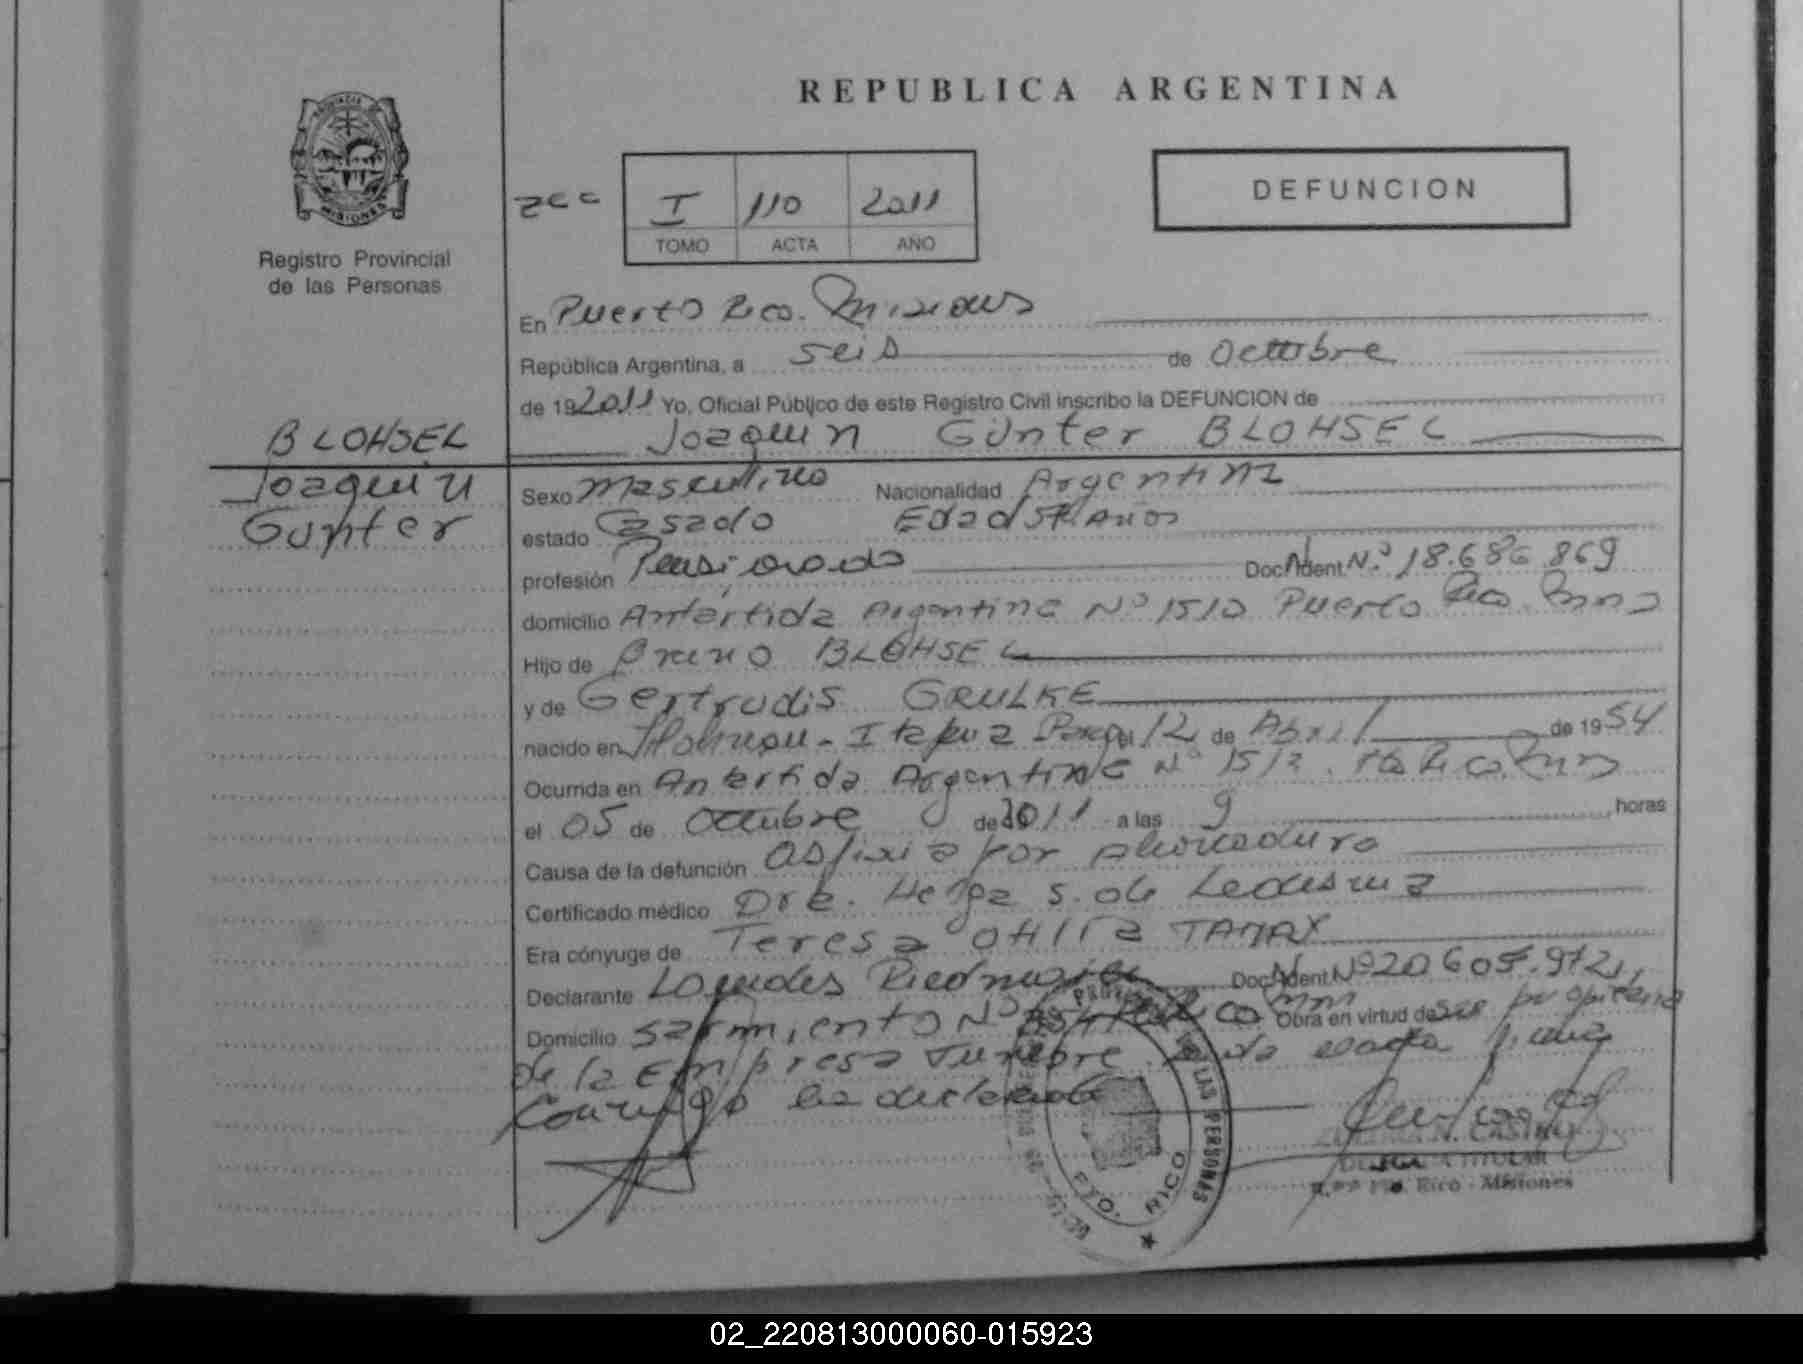 REPUBLICA ARGENTINA
PROVINCIA DE
MISIONES
Registro Provincial
de las Personas
I 110 2011
TOMO ACTA AÑO
DEFUNCION
En Puerto Rico. Misiones
República Argentina, a seis de Octubre
de 192011 Yo, Oficial Público de este Registro Civil inscribo la DEFUNCION de
Joaquin Günter BLOHSEL
BLOHSEL
Joaquin
Gunter
Sexo Masculino Nacionalidad Argentina
estado Casado Edad 57 Años
profesión Pensionado Doc. Ident. Nº 18.686 869
domicilio Antártida Argentina Nº 1510 Puerto Rico. Mnes
Hijo de Bruno BLOHSEL
y de Gertrudis GRULKE
nacido en Hohenau - Itapua Parag el 12 de Abril de 1954
Ocurrida en Antartida Argentina Nº 1513. Pto Rico. Mnes
el 05 de Octubre de 2011 a las 9 horas
Causa de la defunción Asfixia por ahorcadura
Certificado médico Dra. Helga S. de Ledesma
Era cónyuge de Teresa Otilia TAMAY
Declarante Lourdes Doc. Ident. Nº 20 605.972
Domicilio Sarmiento Nº Rico Mnes Obra en virtud de ser propietaria
de la Empresa Funebre. Leida el acta firma
Conmigo la declarante
DE LAS PERSONAS
PTO. RICO
DELEGADA TITULAR
R.P.P. Pto. Rico - Misiones
02_220813000060-015923